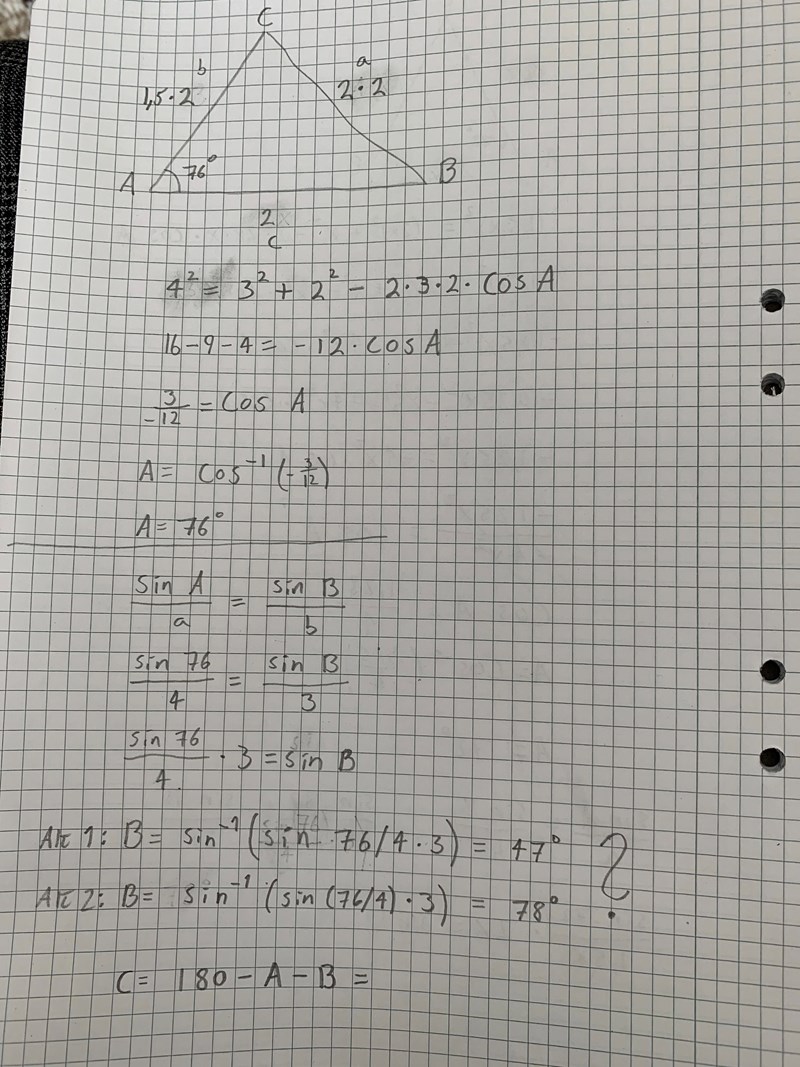 C
b
a
1,5·2
2·2
A
76°
B
2
c
4² = 3² + 2² - 2·3·2·cos A
16-9-4 = -12·cos A
3/-12 = cos A
A = cos⁻¹(-3/12)
A = 76°
sin A/a = sin B/b
sin 76/4 = sin B/3
sin 76/4 · 3 = sin B
Alt 1: B = sin⁻¹(sin 76/4·3) = 47°
?
Alt 2: B = sin⁻¹(sin(76/4)·3) = 78°
C = 180 - A - B =